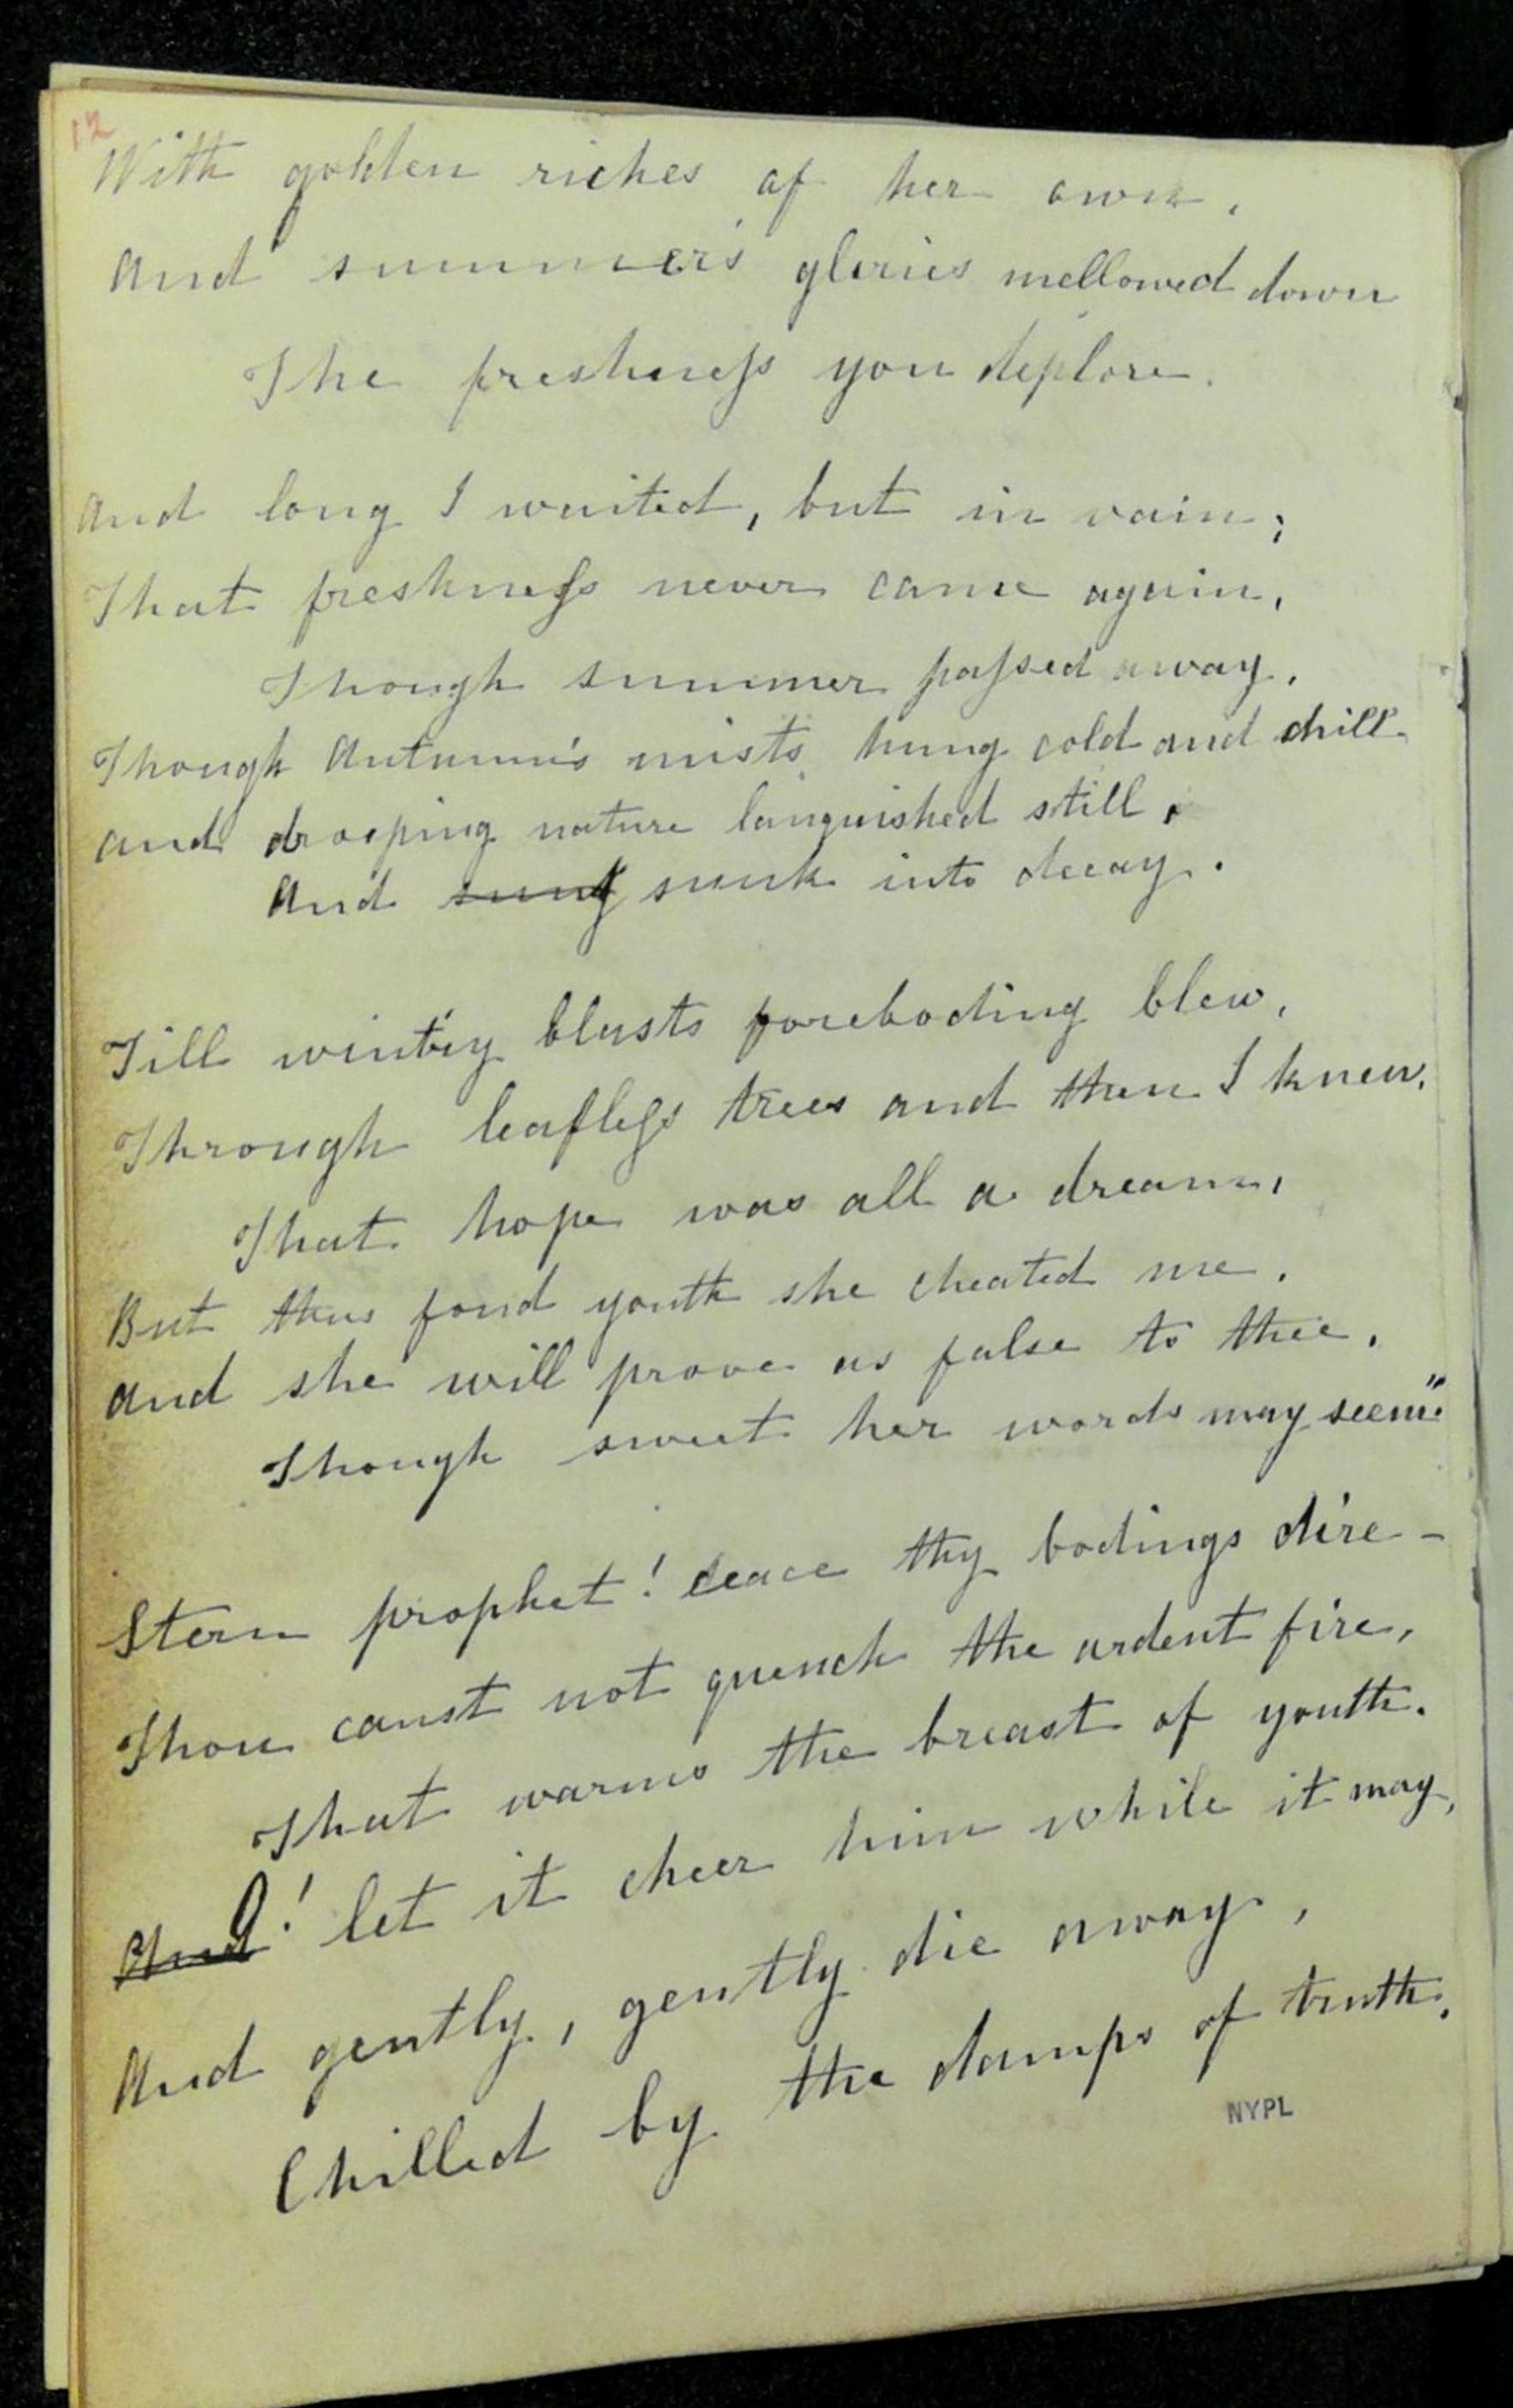 12
With golden riches of her own,
And summer's glories mellowed down
The freshness you deplore.
And long I waited, but in vain;
That freshness never came again,
Though summer passed away,
Though Autumn's mists hung cold and chill
And drooping nature languished still,
And sung sunk into decay.
Till wint'ry blasts foreboding blew,
Through leafless trees and then I knew,
That hope was all a dream,
But thus fond youth she cheated me,
And she will prove as false to thee,
Though sweet her words may seem."
Stern prophet! ceace thy bodings dire -
Thou canst not quench the ardent fire,
That warms the breast of youth.
And O! let it cheer him while it may,
And gently, gently die away,
Chilled by the damps of truth.
NYPL